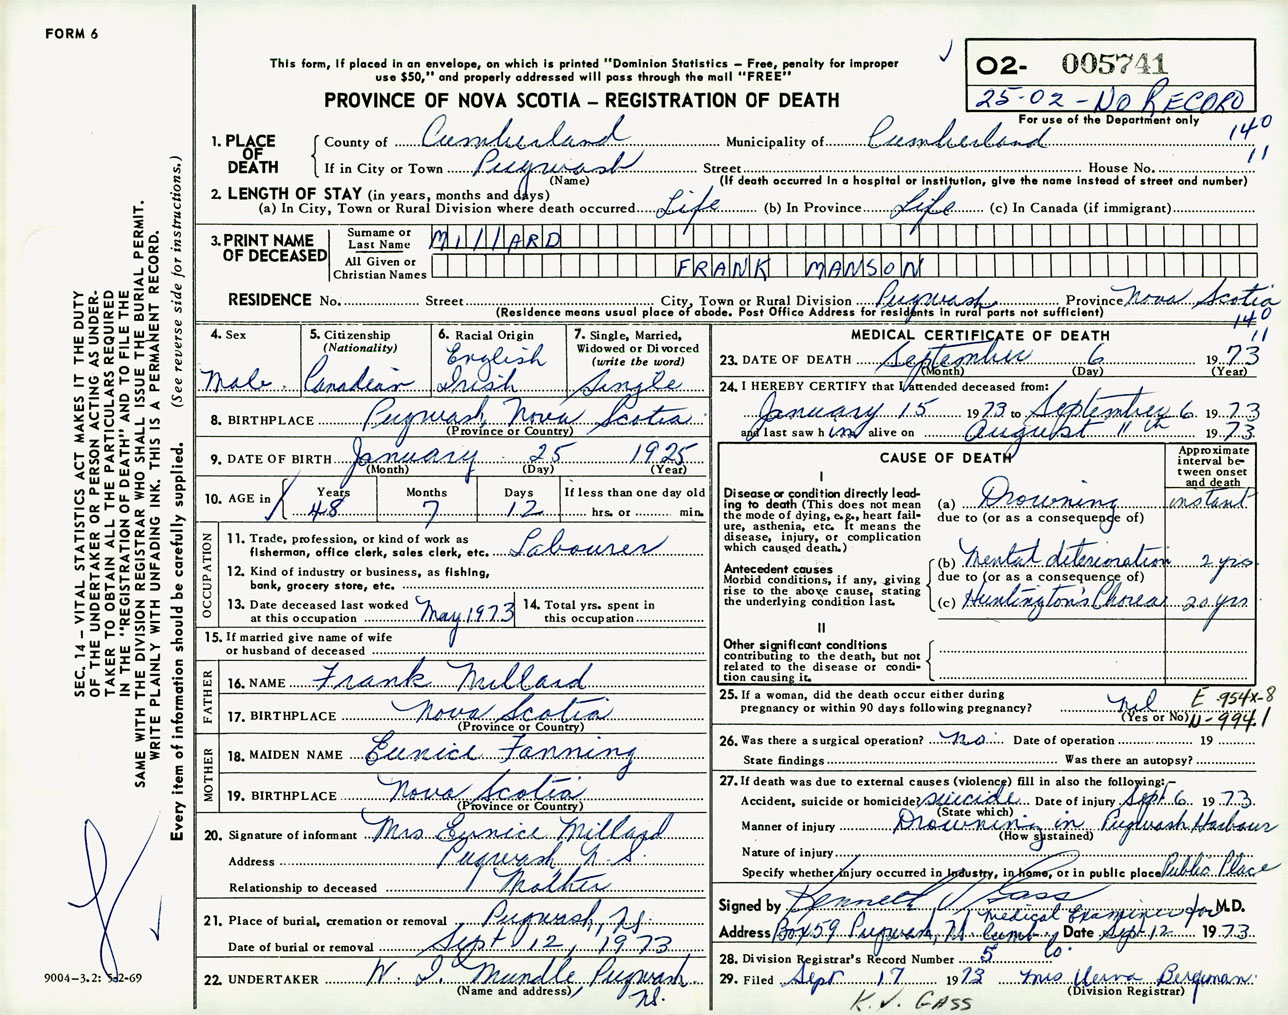 FORM 6
This form, if placed in an envelope, on which is printed "Dominion Statistics – Free, penalty for improper
use $50," and properly addressed will pass through the mail "FREE"
PROVINCE OF NOVA SCOTIA – REGISTRATION OF DEATH
02- 005741
25-02 - NO RECORD
For use of the Department only
140
11
1. PLACE OF DEATH
County of Cumberland Municipality of Cumberland
If in City or Town Pugwash Street House No.
(Name) (If death occurred in a hospital or institution, give the name instead of street and number)
2. LENGTH OF STAY (in years, months and days)
(a) In City, Town or Rural Division where death occurred Life (b) In Province Life (c) In Canada (if immigrant)
3. PRINT NAME OF DECEASED
Surname or Last Name MillARD
All Given or Christian Names FRANK MANSON
RESIDENCE No. Street City, Town or Rural Division Pugwash Province Nova Scotia
(Residence means usual place of abode. Post Office Address for residents in rural parts not sufficient)
140
11
4. Sex
Male
5. Citizenship
(Nationality)
Canadian
6. Racial Origin
English
Irish
7. Single, Married,
Widowed or Divorced
(write the word)
Single
8. BIRTHPLACE Pugwash, Nova Scotia
(Province or Country)
9. DATE OF BIRTH January 25 1925
(Month) (Day) (Year)
10. AGE in Years Months Days If less than one day old
48 7 12 hrs. or min.
OCCUPATION
11. Trade, profession, or kind of work as
fisherman, office clerk, sales clerk, etc. Labourer
12. Kind of industry or business, as fishing,
bank, grocery store, etc.
13. Date deceased last worked
at this occupation May 1973
14. Total yrs. spent in
this occupation
15. If married give name of wife
or husband of deceased
FATHER
16. NAME Frank Millard
17. BIRTHPLACE Nova Scotia
(Province or Country)
MOTHER
18. MAIDEN NAME Eunice Fanning
19. BIRTHPLACE Nova Scotia
(Province or Country)
20. Signature of informant Mrs Eunice Millard
Address Pugwash N.S.
Relationship to deceased Mother
21. Place of burial, cremation or removal Pugwash, NS.
Date of burial or removal Sept 12, 1973
22. UNDERTAKER W. I. Mundle, Pugwash
(Name and address) NS.
MEDICAL CERTIFICATE OF DEATH
23. DATE OF DEATH September 6 1973
(Month) (Day) (Year)
24. I HEREBY CERTIFY that I attended deceased from:
January 15 1973 to September 6 1973
and last saw him alive on August 11th 1973
CAUSE OF DEATH
Approximate
interval be-
tween onset
and death
I
Disease or condition directly lead-
ing to death (This does not mean
the mode of dying, e.g., heart fail-
ure, asthenia, etc. It means the
disease, injury, or complication
which caused death.)
(a) Drowning instant
due to (or as a consequence of)
Antecedent causes
Morbid conditions, if any, giving
rise to the above cause, stating
the underlying condition last.
(b) Mental deterioration 2 yrs
due to (or as a consequence of)
(c) Huntington's Chorea 20 yrs
II
Other significant conditions
contributing to the death, but not
related to the disease or condi-
tion causing it.
25. If a woman, did the death occur either during
pregnancy or within 90 days following pregnancy? Nil
(Yes or No)
E 954X-8
N-9941
26. Was there a surgical operation? No. Date of operation 19
State findings Was there an autopsy?
27. If death was due to external causes (violence) fill in also the following:–
Accident, suicide or homicide? suicide Date of injury Sept 6 1973
(State which)
Manner of injury Drowning in Pugwash Harbour
(How sustained)
Nature of injury
Specify whether injury occurred in industry, in home, or in public place Public Place
Signed by Kenneth V Gass M.D.
Medical Examiner for
Address Box 59 Pugwash, N.S. Cumb. Co. Date Sept. 12 1973
28. Division Registrar's Record Number 5
29. Filed Sept 17 1973 Mrs Verna Bergman
(Division Registrar)
K. V. GASS
SEC. 14 – VITAL STATISTICS ACT MAKES IT THE DUTY
OF THE UNDERTAKER OR PERSON ACTING AS UNDER-
TAKER TO OBTAIN ALL THE PARTICULARS REQUIRED
IN THE "REGISTRATION OF DEATH" AND TO FILE THE
SAME WITH THE DIVISION REGISTRAR WHO SHALL ISSUE THE BURIAL PERMIT.
WRITE PLAINLY WITH UNFADING INK. THIS IS A PERMANENT RECORD.
Every item of information should be carefully supplied. (See reverse side for instructions.)
9004-3.2: 5-2-69